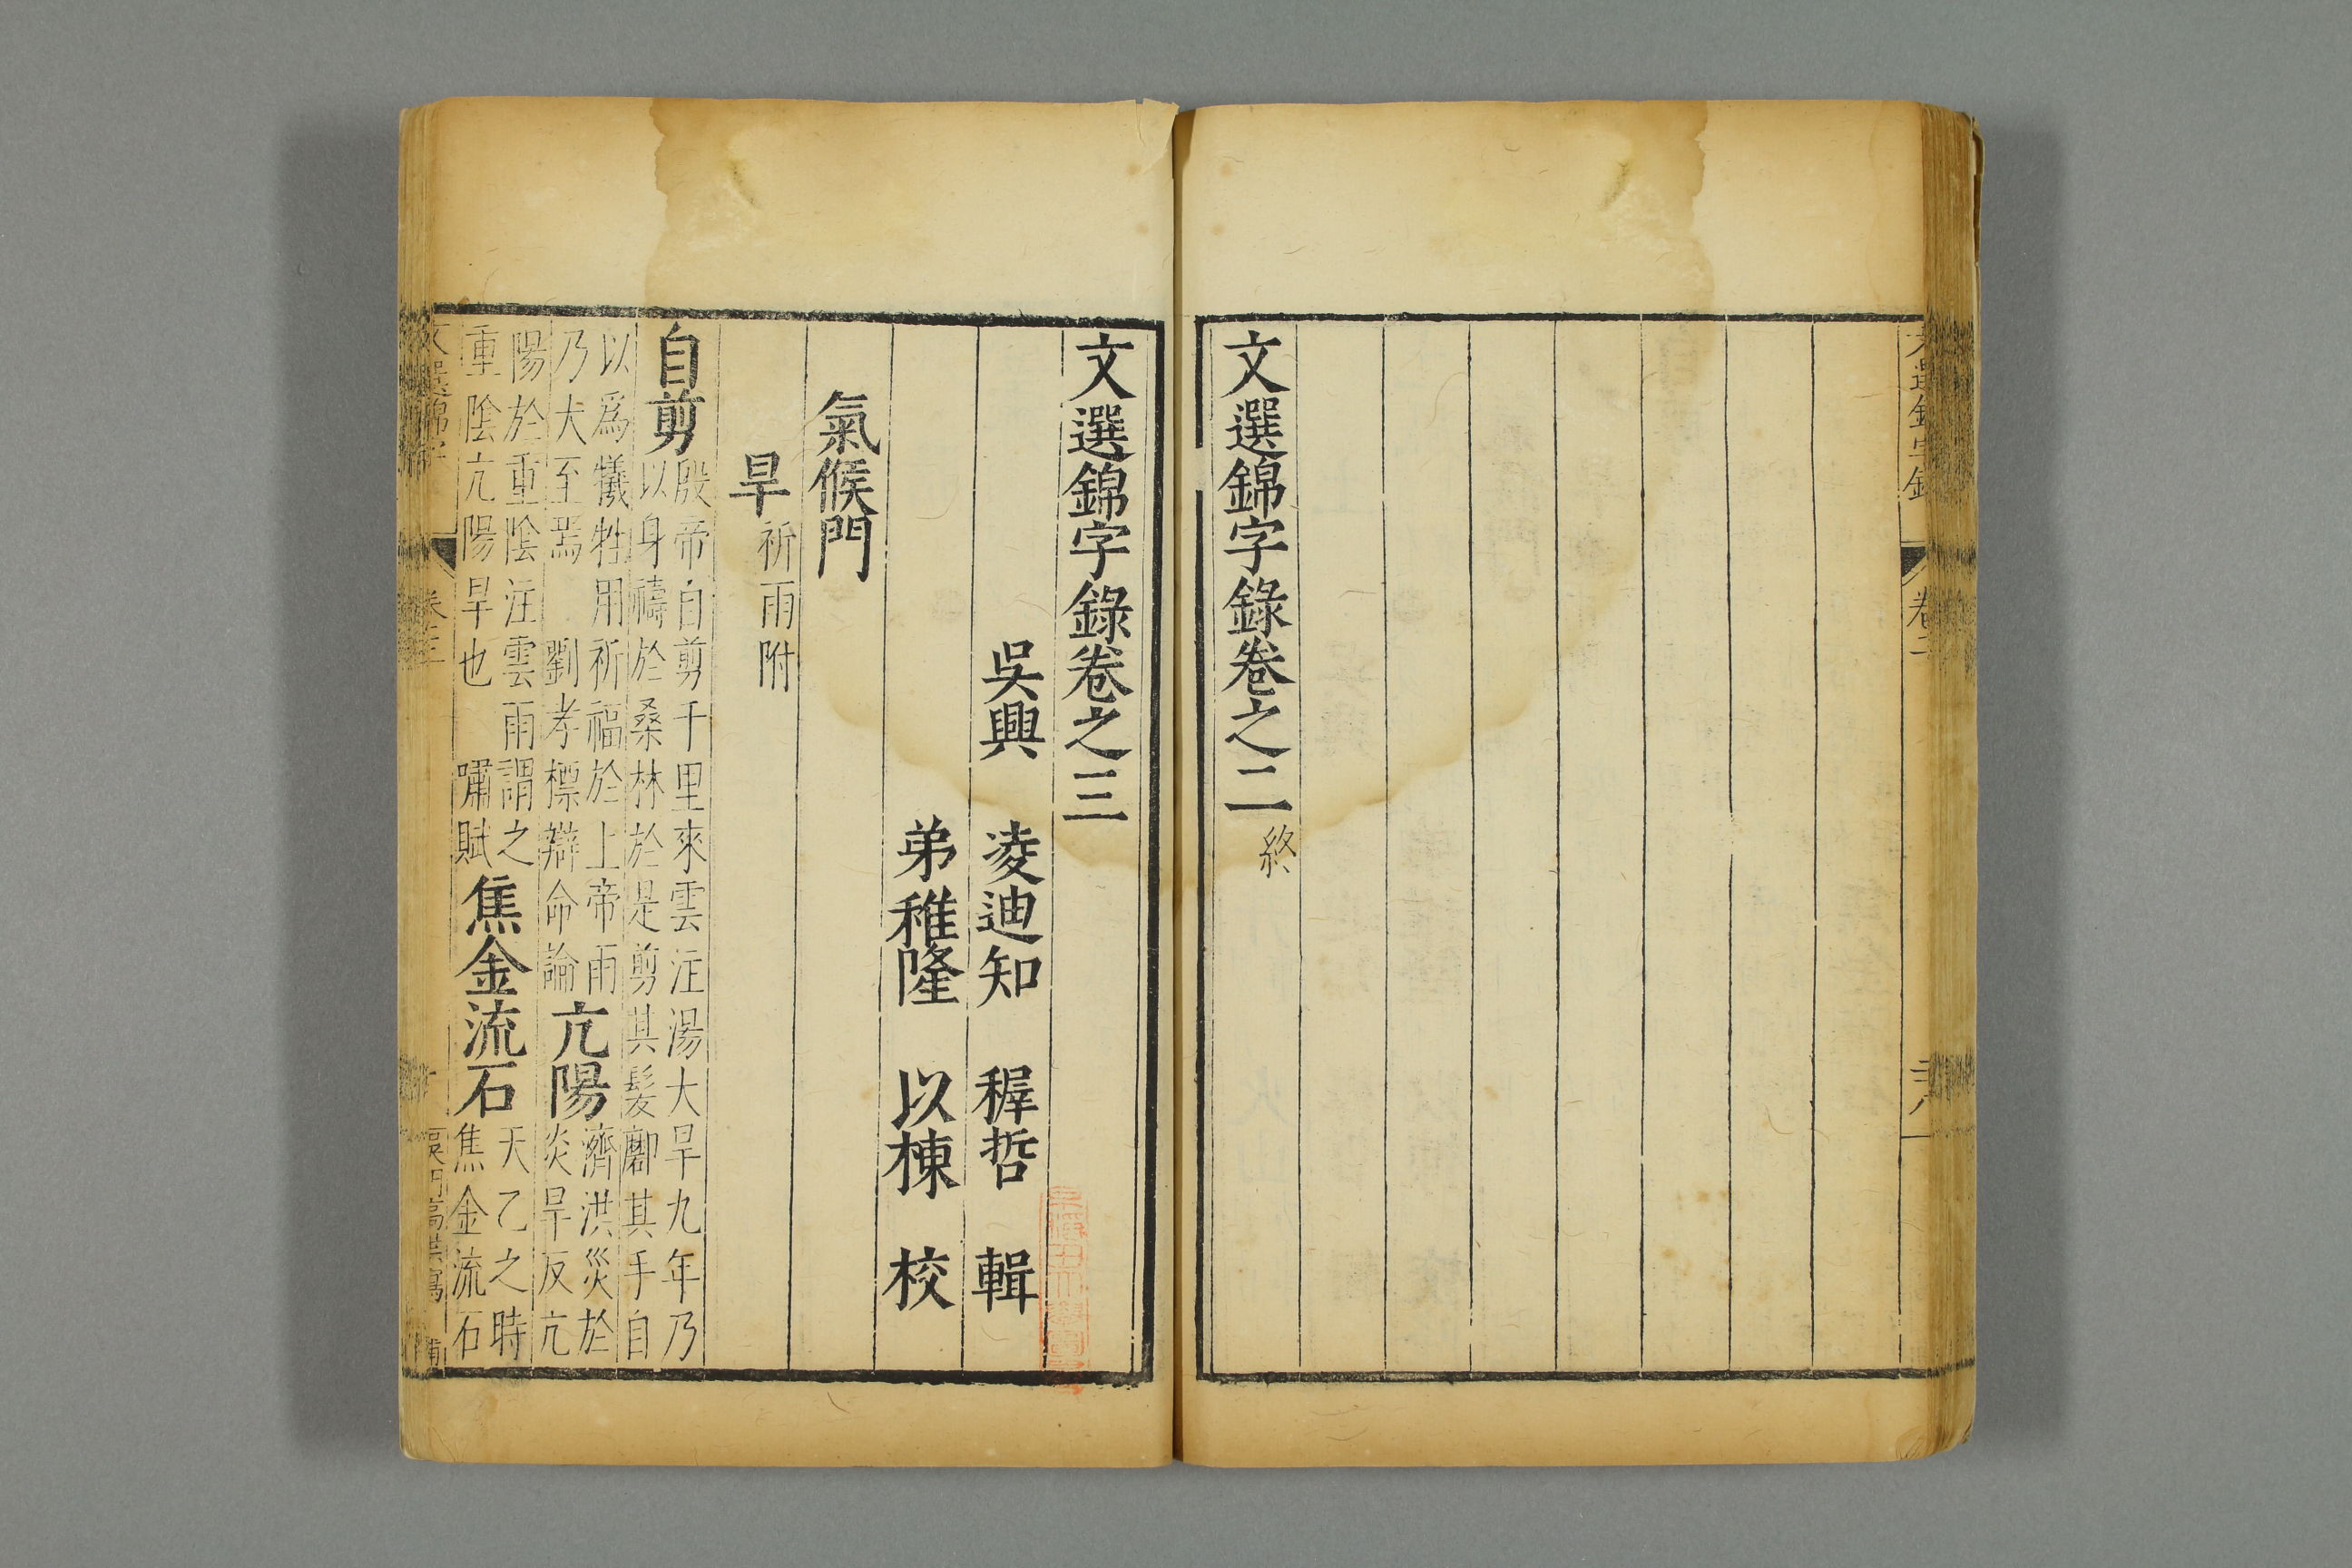 文選錦字錄卷之二終
文選錦字錄卷之三
吳興 凌迪知 穉哲 輯
弟稚隆 以棟 校
氣候門
旱祈雨附
自剪殷帝自剪千里來雲注湯大旱九年乃
以身禱於桑林於是剪其髮酈其手自
以爲犧牲用祈福於上帝雨
乃大至焉 劉孝標辯命論亢陽濟洪災於
炎旱反亢
陽於重陰注雲雨謂之
重陰亢陽旱也 嘯賦焦金流石天乙之時
焦金流石